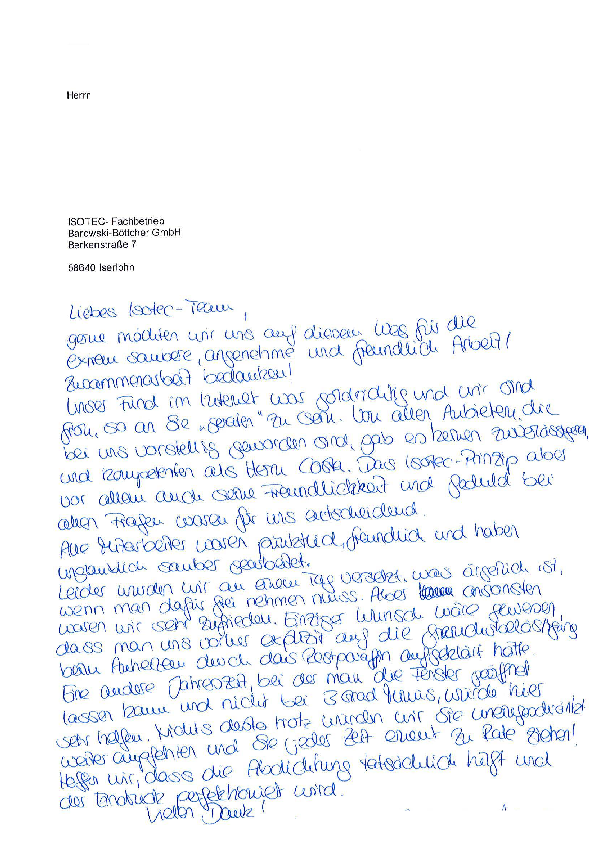 Herrr
ISOTEC- Fachbetrieb
Barowski-Böttcher GmbH
Berkenstraße 7
58640 Iserlohn
Liebes Isotec-Team,
gerne möchten wir uns auf diesem Weg für die
extrem saubere, angenehme und freundlich Arbeit/
Zusammenarbeit bedanken!
Unser Fund im Internet war goldrichtig und wir sind
froh, so an Sie „geraten" zu sein. Von allen Anbietern, die
bei uns vorstellig geworden sind, gab es keinen zuverlässigeren
und kompetenten als Herrn Costa. Das Isotec-Prinzip aber
vor allem auch seine Freundlichkeit und Geduld bei
allen Fragen waren für uns entscheidend.
Alle Mitarbeiter waren pünktlich, freundlich und haben
unglaublich sauber gearbeitet.
Leider wurden wir an einem Tag versetzt, was ärgerlich ist,
wenn man dafür frei nehmen muss. Aber ansonsten
waren wir sehr zufrieden. Einziger Wunsch wäre gewesen,
dass man uns vorher explizit auf die Geruchsbelästigung
beim Aufheizen durch das Restparaffin aufgeklärt hätte.
Eine andere Jahreszeit, bei der man die Fenster geöffnet
lassen kann und nicht bei 3 Grad Minus, würde hier
sehr helfen. Nichts desto trotz würden wir Sie uneingeschränkt
weiter empfehlen und Sie jeder Zeit erneut zu Rate ziehen!
Hoffen wir, dass die Abdichtung tatsächlich hilft und
der Eindruck perfektioniert wird.
Vielen Dank!